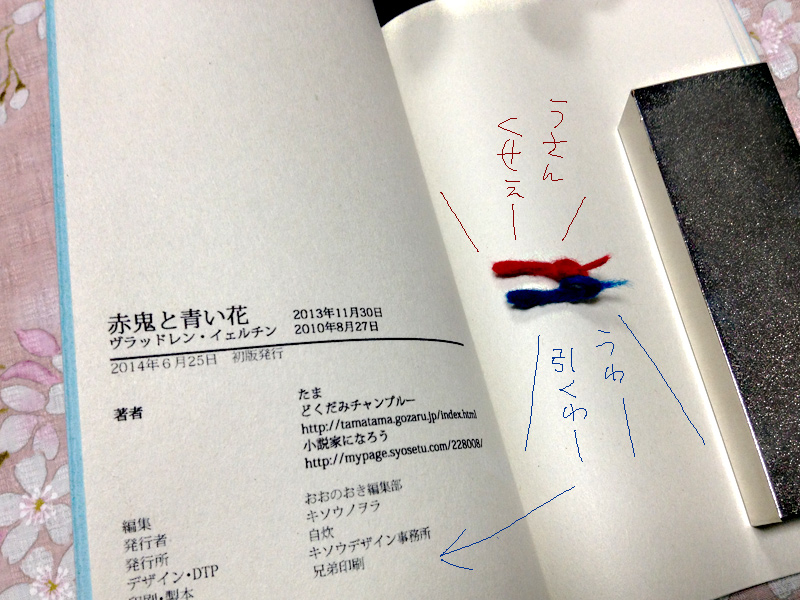 赤鬼と青い花
2013年11月30日
ヴラッドレン・イェルチン
2010年8月27日
2014年6月25日 初版発行
著者
たま
どくだみチャンプルー
http://tamatama.gozaru.jp/index.html
小説家になろう
http://mypage.syosetu.com/228008/
編集
おおのおき編集部
発行者
キソウノヲラ
発行所
自炊
デザイン・DTP
キソウデザイン事務所
印刷・製本
兄弟印刷
うさん
くせぇー
うわー
引くわー